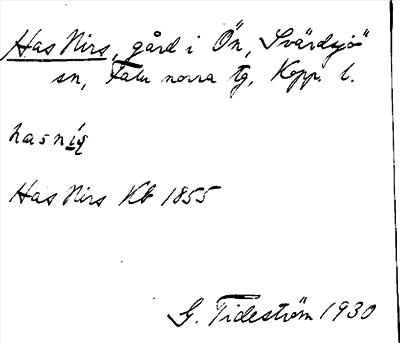 Has Nirs, gård i Ön, Svärdsjö
sn, Falu norra tg, Kopp. l.
hasnís
Has Nirs Kb 1855
G. Tideström 1930